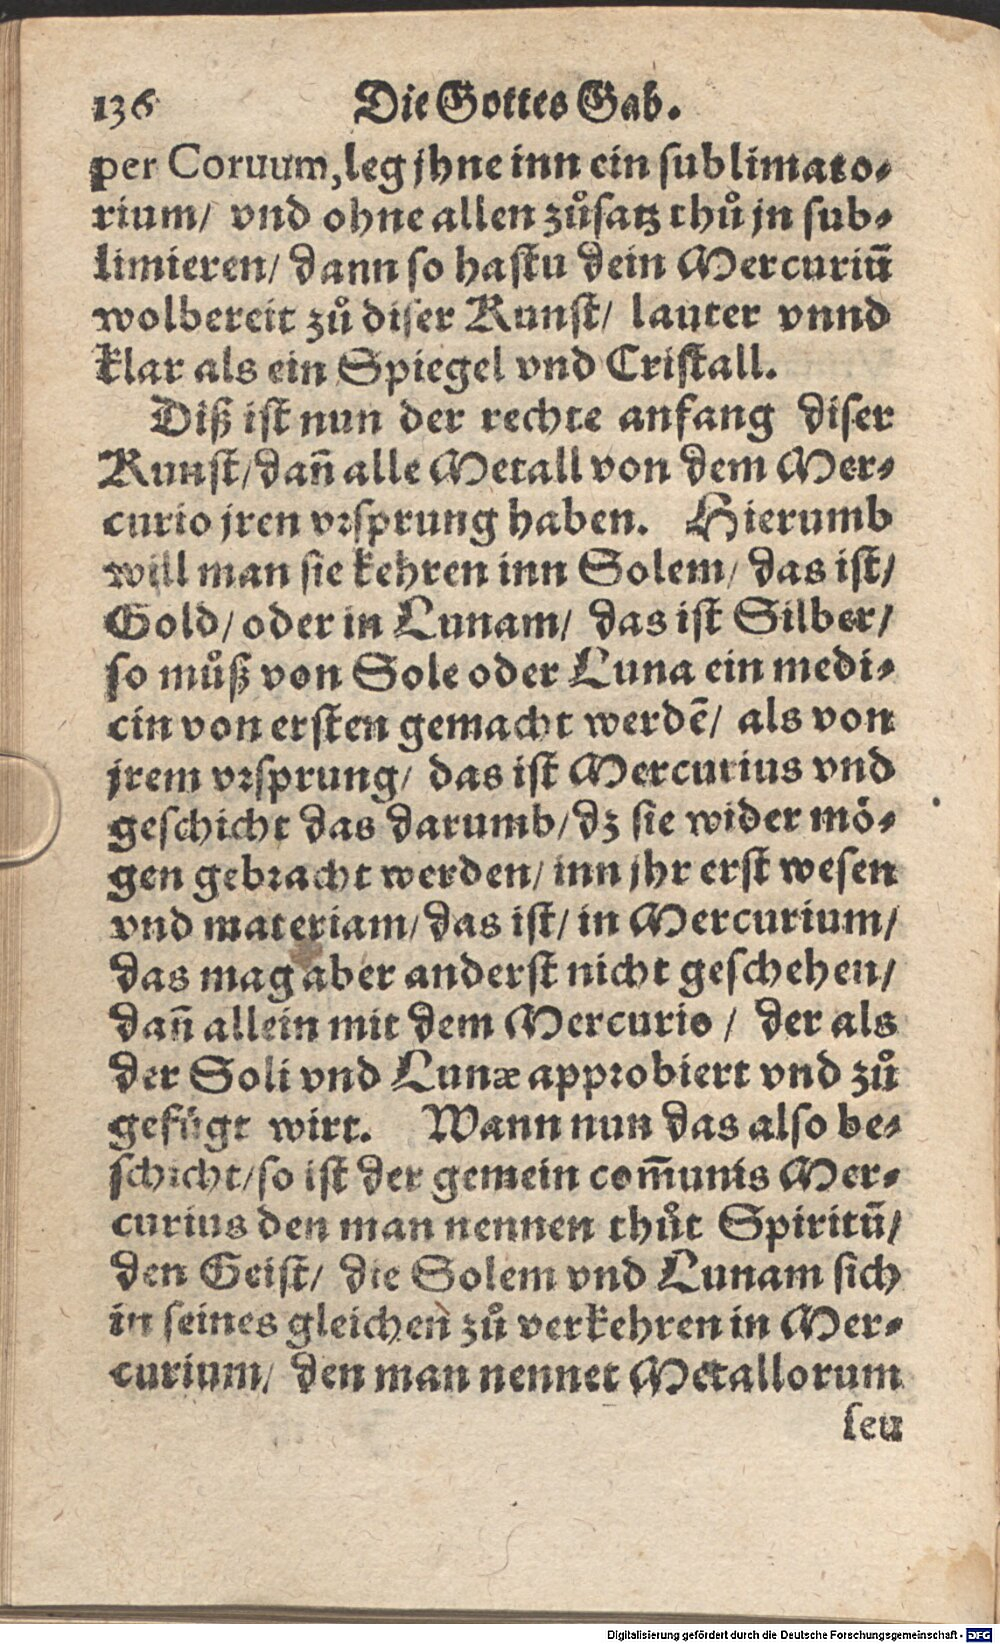 136 Die Gottes Gab.
per Coruum, leg jhne inn ein sublimato⸗
rium/ vnd ohne allen zůsatz thů jn sub⸗
limieren/ dann so hastu dein Mercuriū
wolbereit zů diser Kunst/ lauter vnnd
klar als ein Spiegel vnd Cristall.
Diß ist nun der rechte anfang diser
Kunst/ dañ alle Metall von dem Mer⸗
curio jren vrsprung haben. Hierumb
will man sie kehren inn Solem/ das ist/
Gold/ oder in Lunam/ das ist Silber/
so můß von Sole oder Luna ein medi⸗
cin von ersten gemacht werdē/ als von
jrem vrsprung/ das ist Mercurius vnd
geschicht das darumb/ dz sie wider mö⸗
gen gebracht werden/ inn jhr erst wesen
vnd materiam/ das ist/ in Mercurium/
das mag aber anderst nicht geschehen/
dañ allein mit dem Mercurio / der als
der Soli vnd Lunæ approbiert vnd zů
gefügt wirt. Wann nun das also be⸗
schicht/ so ist der gemein com̄unis Mer⸗
curius den man nennen thůt Spiritū/
den Geist/ die Solem vnd Lunam sich
in seines gleichen zů verkehren in Mer⸗
curium/ den man nennet Metallorum
seu
Digitalisierung gefördert durch die Deutsche Forschungsgemeinschaft - DFG